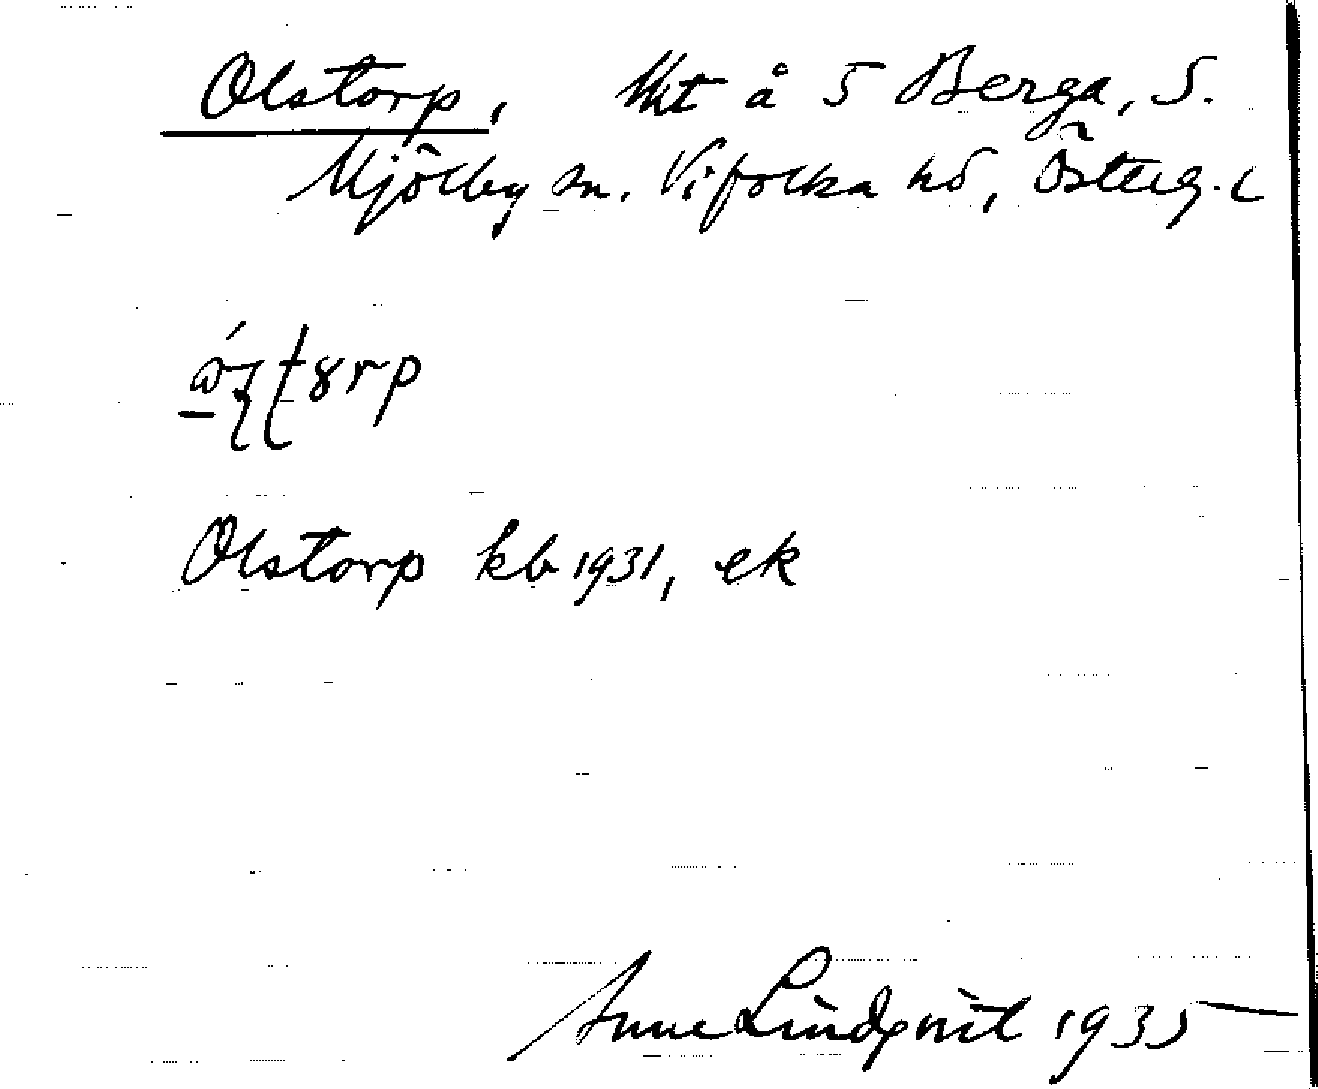 Olstorp, lht å 5 Berga, S.
Mjölby sn. Vifolka hd, Österg. l
Olstorp kb 1931, ek
Sune Lindqvist 1935